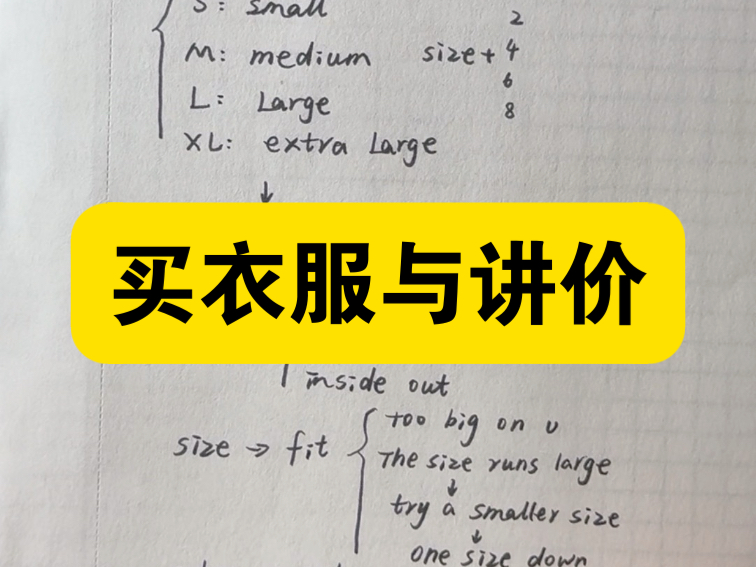 S: small 2
M: medium size + 4
6
L: Large 8
XL: extra Large
↓
买衣服与讲价
inside out
too big on u
size → fit
The size runs large
↓
try a smaller size
↓
one size down